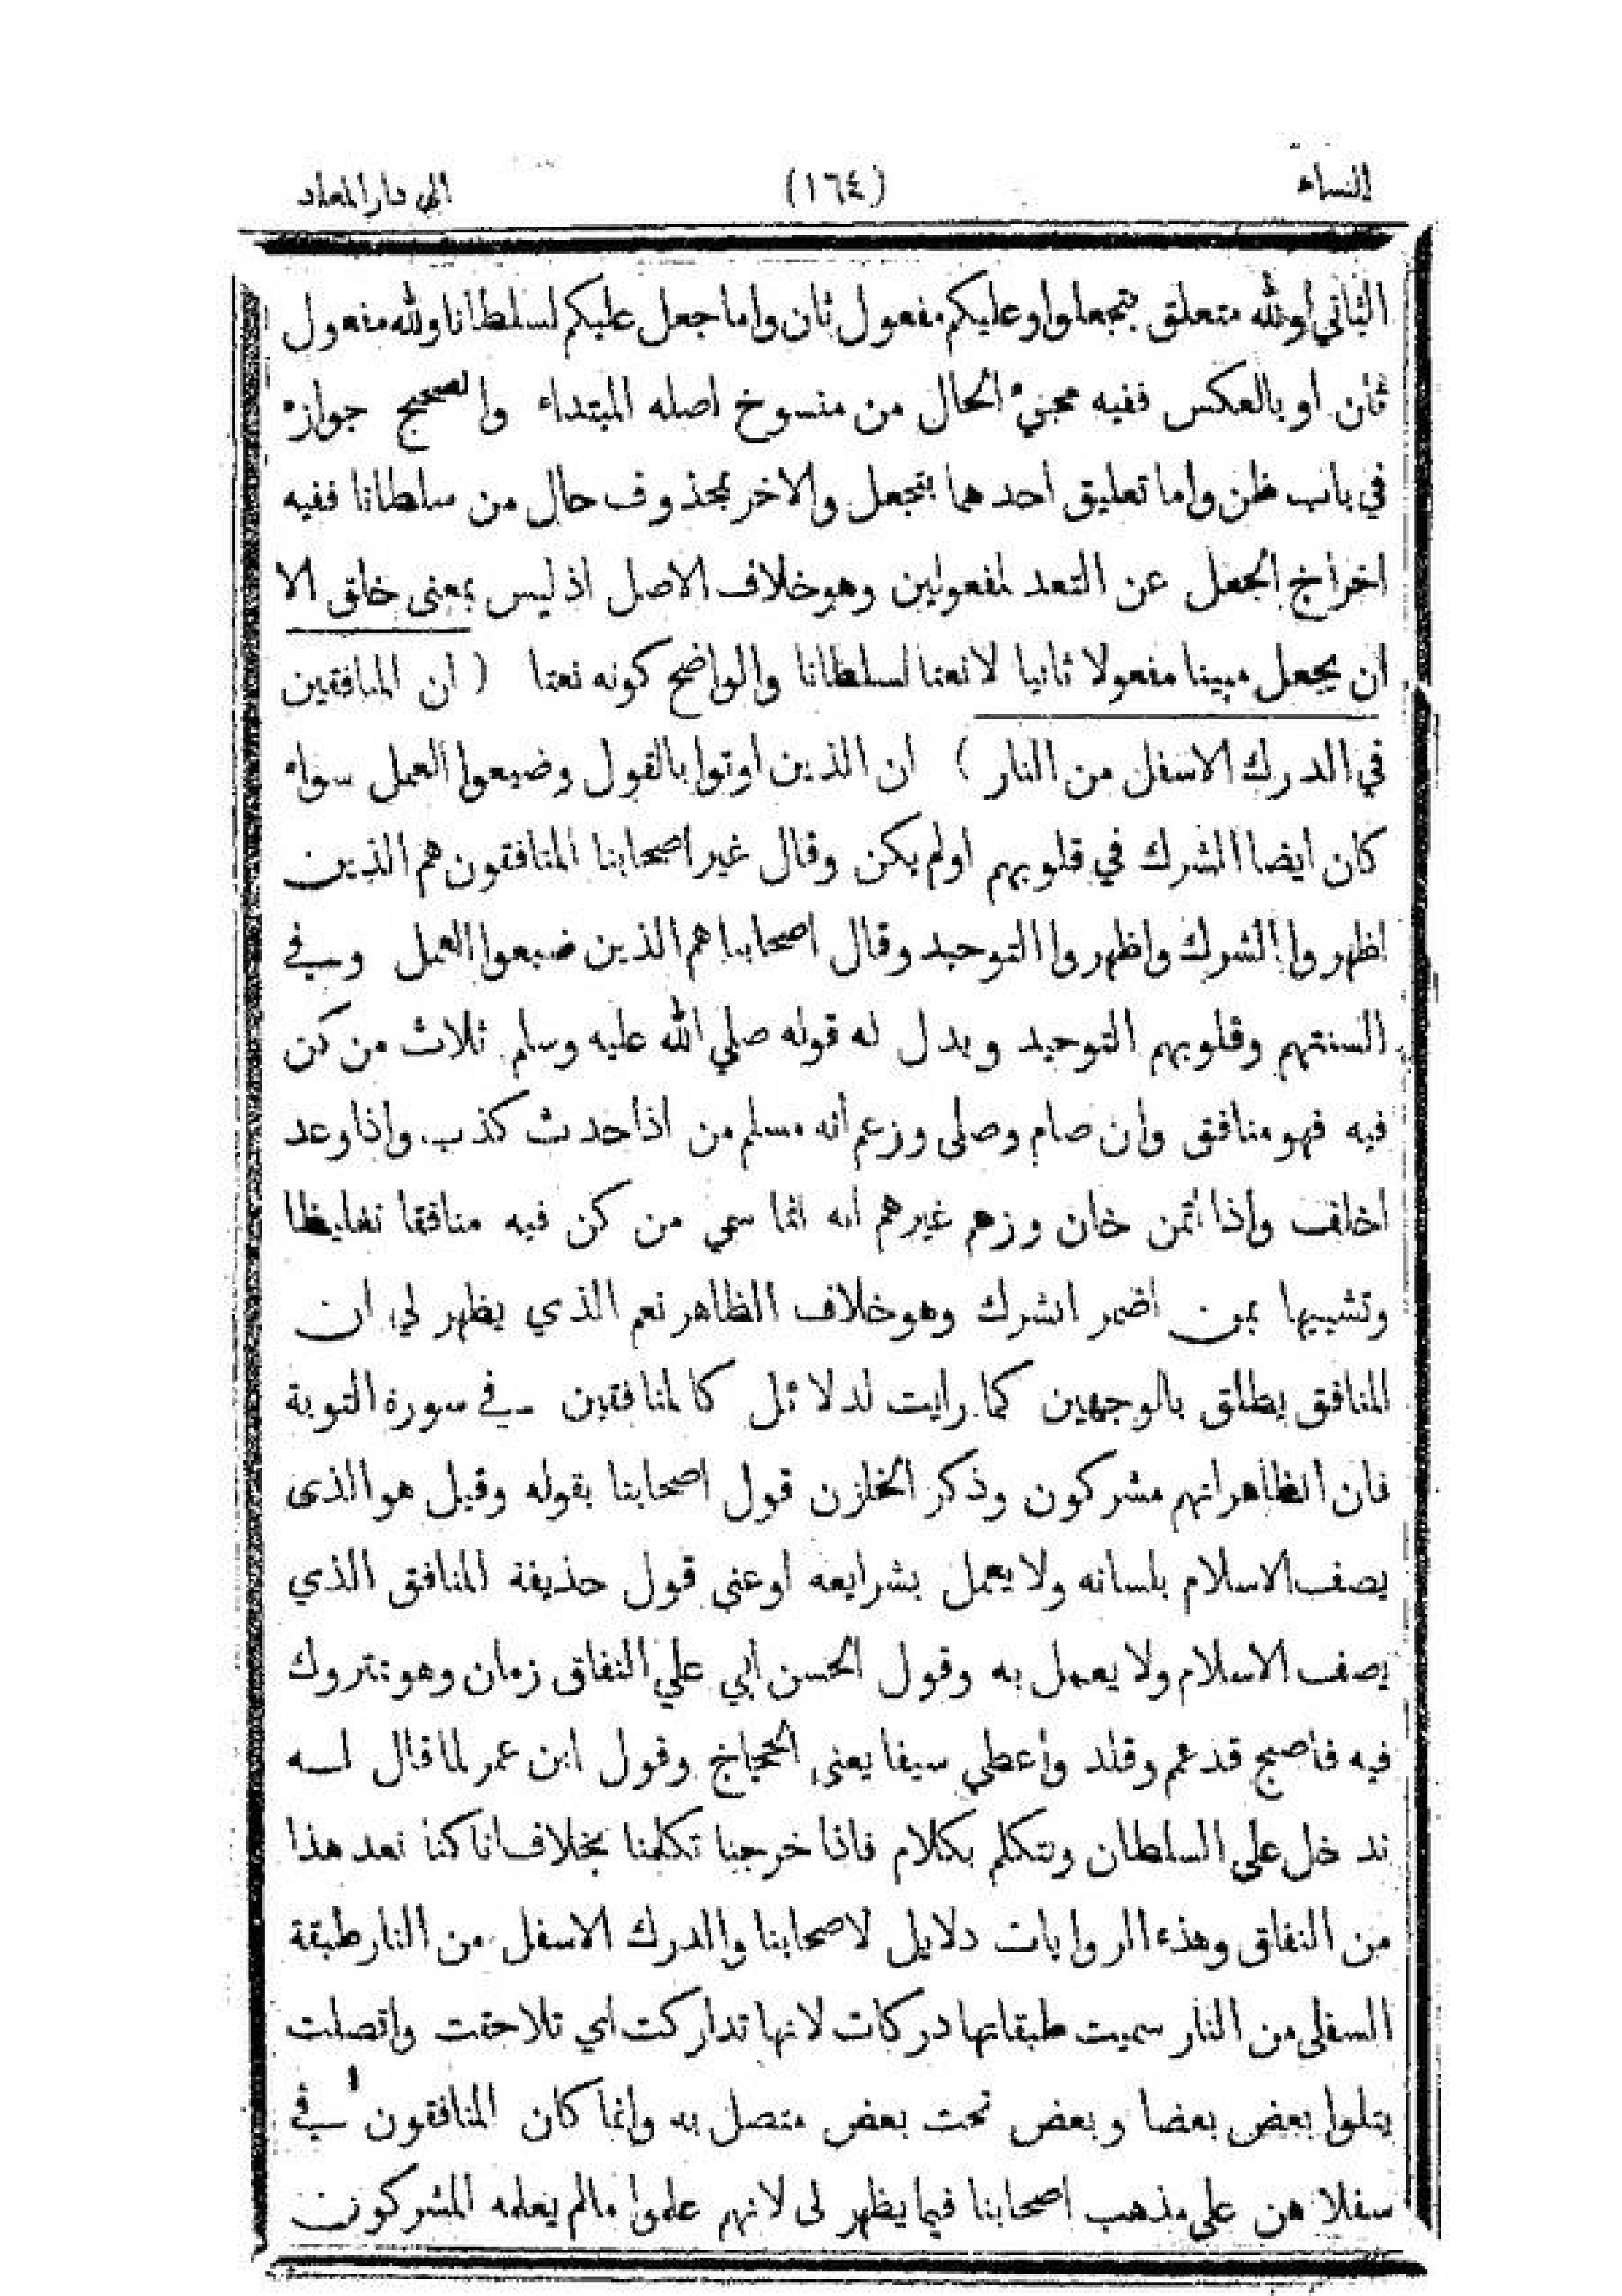 النساء (١٦٤) الى دار المعاد
الثاني أو لله متعلق بتجعلوا وعليكم مفعول ثان واما جعل عليكم لسلطانا ولله مفعول
ثان او بالعكس ففيه مجيء الحال من منسوخ اصله المبتداء والصحيح جوازه
في باب ظن واما تعليق احدهما بتجعل والاخر بمحذوف حال من سلطانا ففيه
اخراج الجعل عن التعد لمفعولين وهو خلاف الاصل اذ ليس بمعنى خلق الا
ان يجعل مبينا مفعولا ثانيا لا نعتا لسلطانا والواضح كونه نعتا ( ان المنافقين
في الدرك الاسفل من النار ) ان الذين اوتوا بالقول وضيعوا العمل سواء
كان ايضا الشرك في قلوبهم اولم يكن وقال غير اصحابنا المنافقون هم الذين
اظهروا الشرك واظهروا التوحيد وقال اصحابنا هم الذين ضيعوا العمل وفي
السنتهم وقلوبهم التوحيد ويدل له قوله صلي الله عليه وسلم ثلاث من كن
فيه فهو منافق وان صام وصلى وزعم أنه مسلم من اذا حدث كذب واذا وعد
اخلف واذا أتمن خان وزعم غيرهم انه انما سمي من كن فيه منافقا تغليظا
وتشبيها بمن اضمر الشرك وهو خلاف الظاهر نعم الذي يظهر لي ان
المنافق يطلق بالوجهين كما رايت لدلائل كالمنافقين في سورة التوبة
فان الظاهر انهم مشركون وذكر الخازن قول اصحابنا بقوله وقيل هو الذى
يصف الاسلام بلسانه ولا يعمل بشرايعه اوعنى قول حذيفة المنافق الذي
يصف الاسلام ولا يعمل به وقول الحسن أبي علي النفاق زمان وهو متروك
فيه فأصبح قد عم وقلد وأعطي سيفا يعنى الحجاج وقول ابن عمر لما قال له
ندخل على السلطان ونتكلم بكلام فاذا خرجنا تكلمنا بخلاف انا كنا نعد هذا
من النفاق وهذه الروايات دلايل لاصحابنا والدرك الاسفل من النار طبقة
السفلى من النار سميت طبقاتها دركات لانها تداركت اي تلاحقت واتصلت
يتلوا بعض بعضا وبعض تحت بعض متصل به وانما كان المنافقون في
سفلاهن على مذهب اصحابنا فيما يظهر لى لانهم علموا مالم يعلمه المشركون